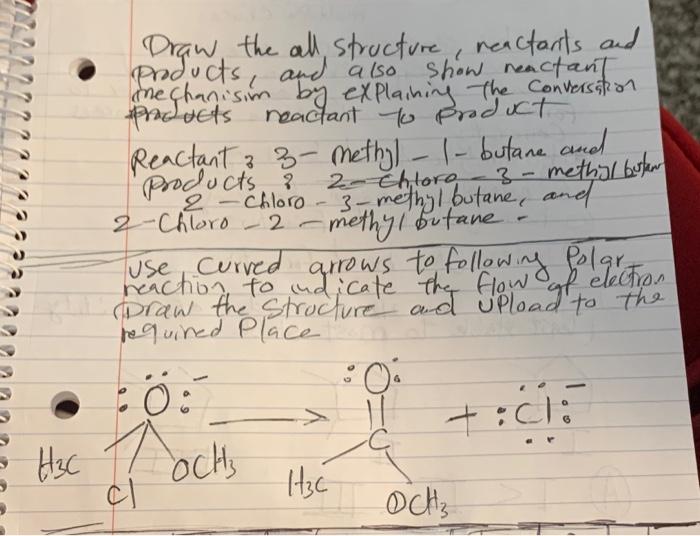 Draw the all structure, reactants and
products, and also show reactant
mechanisim by explaining the conversation
products reactant to product
Reactant : 3-methyl-1-butane and
products : 2-chloro-3-methyl butan
2-chloro-3-methyl butane, and
2-Chloro-2-methyl butane -
use curved arrows to following Polar
reaction to indicate the flow of electron
Draw the structure and upload to the
required Place
:Ö:⁻
H3C
Cl
OCH3
→
:O:
||
C
H3C
OCH3
+ :Cl:⁻